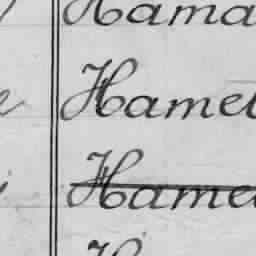 Hama
Hamel
Hame